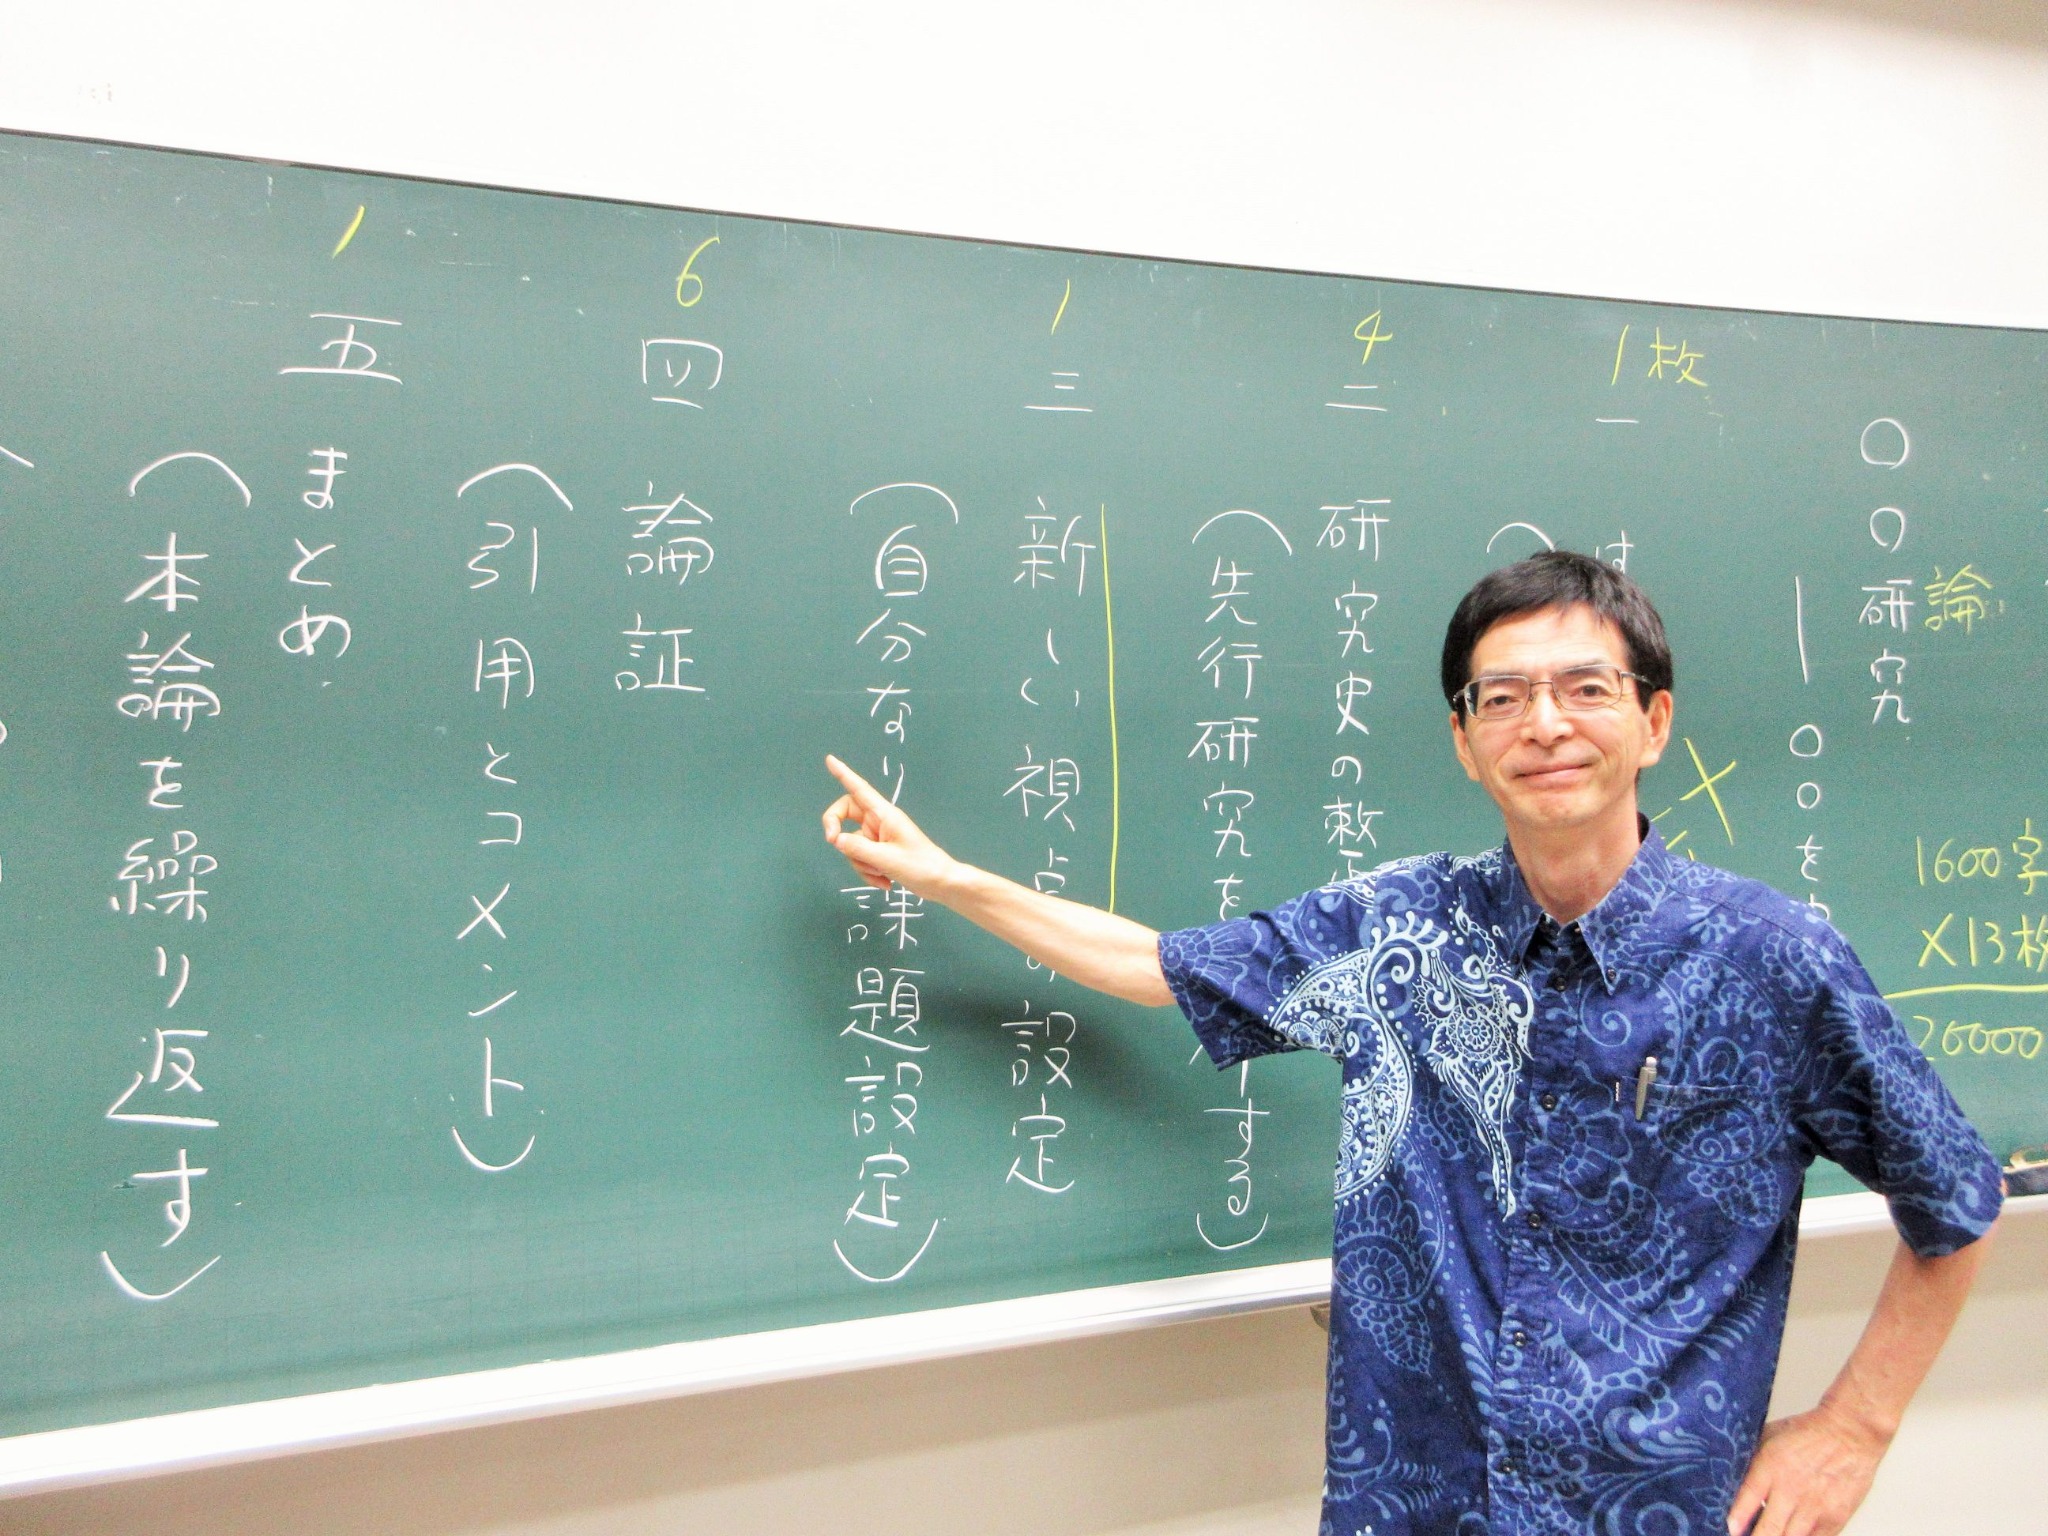 〇〇研究
論
―〇〇を
1600字
×13枚
20000
1枚
一
は
4
二
研究史の整
（先行研究を
する）
1
三
新しい視点の設定
（自分なり
課題設定）
6
四
論証
（引用とコメント）
1
五
まとめ
（本論を繰り返す）